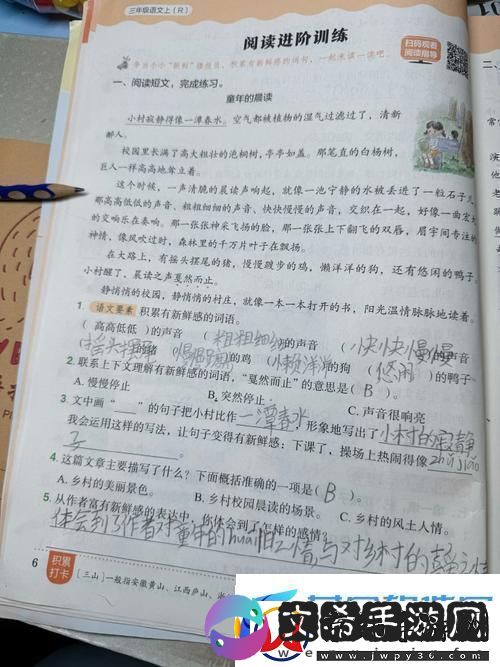 三年级语文上(R)
阅读进阶训练
扫码观看
阅读指导
争当小小“新鲜”播报员，积累有新鲜感的词句，一起来读一读吧。
一、阅读短文，完成练习。
童年的晨读
小村寂静得像一潭春水。空气都被植物的湿气过滤过了，清新
醉人。
校园里长满了高大粗壮的泡桐树，亭亭如盖。那笔直的白杨树，
巨人一样高高地耸立着。
这个时候，一声清脆的晨读声响起，就像一池宁静的水被丢进了一粒石子
那高高低低的声音、粗粗细细的声音、快快慢慢的声音，交织在一起，好像一曲宏大
的交响乐在奏响。那一张张神采飞扬的脸，那一张张上下翻飞的双唇，眉宇间专注的
神情，像风吹过时，森林里的千万片叶子在飘扬。
在大路上，有摇头摆尾的猪，慢慢踱步的鸡，懒洋洋的狗，还有悠闲的鸭子
小村醒了，晨读之声戛然而止。
静悄悄的校园，静悄悄的村庄，就像一本一本打开的书，阳光温情脉脉地读着。
1. 语文要素 积累有新鲜感的词语。
(高高低低)的声音 (粗粗细细)的声音 (快快慢慢)的声音
(摇头摆尾)的猪 (慢慢踱步)的鸡 (懒洋洋)的狗 (悠闲)的鸭子
2. 联系上下文理解有新鲜感的词语，“戛然而止”的意思是( B )。
A. 慢慢停止 B. 突然停止 C. 声音很响亮
3. 文中画“___”的句子把小村比作一潭春水，形象地写出了小村的寂静
我会运用这样的写法，让句子变得有新鲜感：下课了，操场上热闹得像zhà jiào
了
4. 这篇文章主要描写了什么？下面概括准确的一项是( B )。
A. 乡村的美丽景色。 B. 乡村校园晨读的场景。 C. 乡村的风土人情。
5. 从作者富有新鲜感的表达中，你体会到了怎样的感情？
体会到了作者对童年的huái旧之情与对乡村的喜
6
积累
打卡
[三山]一般指安徽黄山、江西庐山、浙
www.jwpy36.com